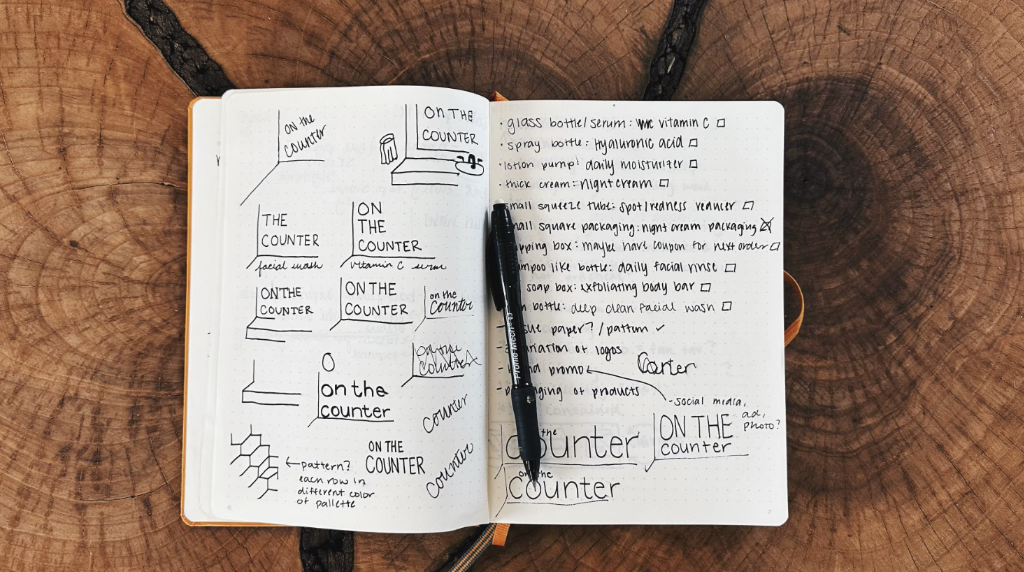 on the
counter
ON THE
COUNTER
THE
COUNTER
facial wash
ON
THE
COUNTER
vitamin C serum
ON THE
COUNTER
ON THE
COUNTER
on the
counter
on the
counter
on the
counter
counter
ON THE
COUNTER
counter
pattern?
each row in
different color
of pallette
• glass bottle/serum: vitamin C
• spray bottle: hyaluronic acid
• lotion pump: daily moisturizer
• thick cream: night cream
small squeeze tube: spot/redness reducer
small square packaging: night cream packaging
box: maybe have coupon for next order
like bottle: daily facial rinse
soap box: exfoliating body bar
bottle: deep clean facial wash
paper? / pattern ✓
variation of logos
promo
of products
- social media,
ad,
photo?
the
counter
ON THE
counter
on the
counter